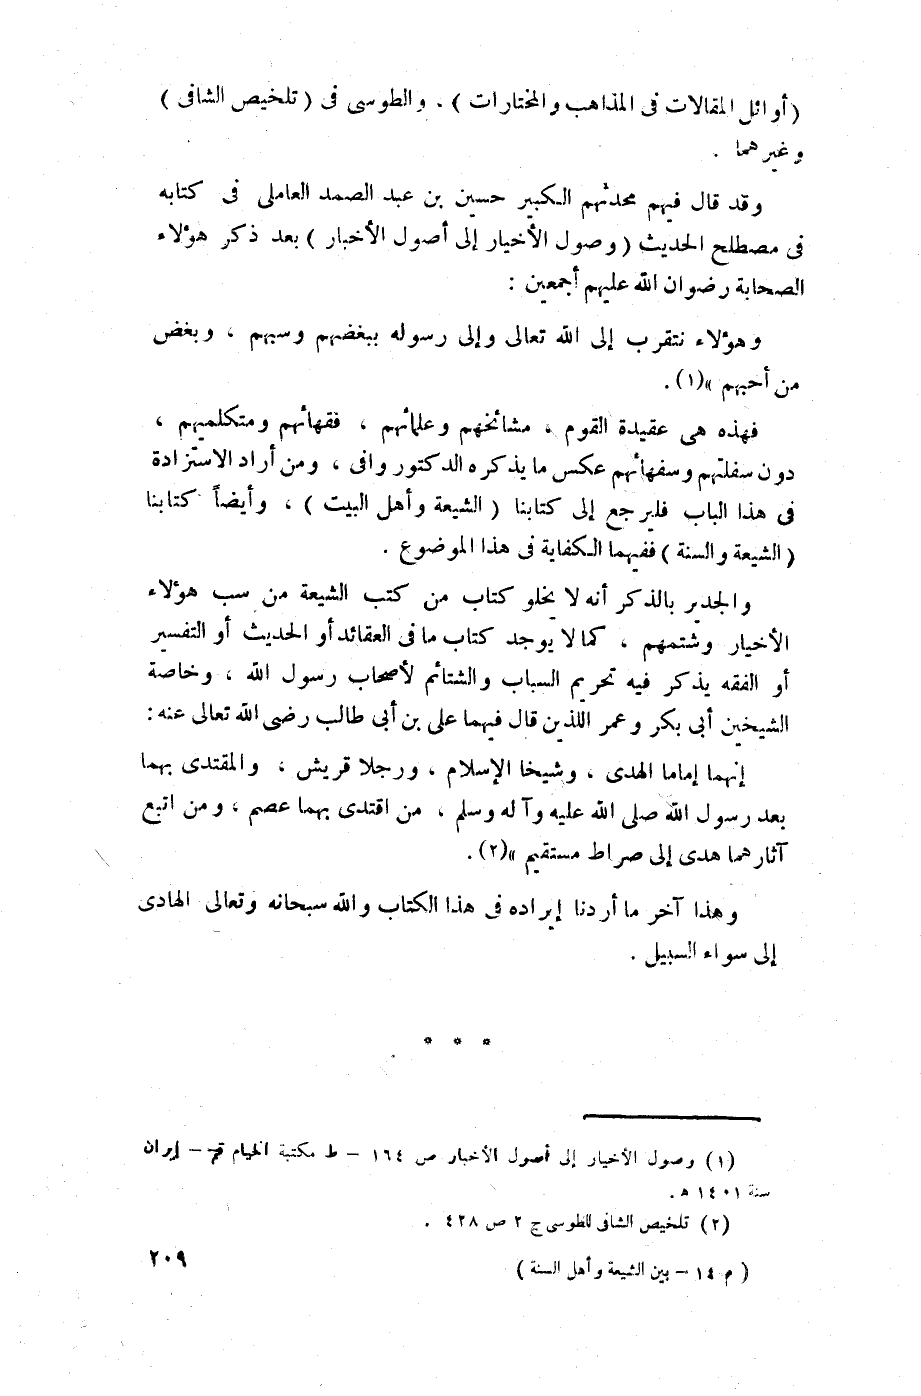 (أوائل المقالات فى المذاهب والمختارات) . والطوسى فى (تلخيص الشافى)
وغيرهما .
وقد قال فيهم محدثهم الكبير حسين بن عبد الصمد العاملى فى كتابه
فى مصطلح الحديث (وصول الأخيار إلى أصول الأخبار) بعد ذكر هؤلاء
الصحابة رضوان الله عليهم أجمعين :
وهؤلاء نتقرب إلى الله تعالى وإلى رسوله ببغضهم وسبهم ، وبغض
من أحبهم »(١) .
فهذه هى عقيدة القوم ، مشائخهم وعلمائهم ، فقهائهم ومتكلميهم ،
دون سفلتهم وسفهائهم عكس ما يذكره الدكتور وافى ، ومن أراد الاستزادة
فى هذا الباب فليرجع إلى كتابنا (الشيعة وأهل البيت) ، وأيضاً كتابنا
(الشيعة والسنة) ففيهما الكفاية فى هذا الموضوع .
والجدير بالذكر أنه لا يخلو كتاب من كتب الشيعة من سب هؤلاء
الأخيار وشتمهم ، كما لا يوجد كتاب ما فى العقائد أو الحديث أو التفسير
أو الفقه يذكر فيه تحريم السباب والشتائم لأصحاب رسول الله ، وخاصة
الشيخين أبى بكر وعمر اللذين قال فيهما على بن أبى طالب رضى الله تعالى عنه :
إنهما إماما الهدى ، وشيخا الإسلام ، ورجلا قريش ، والمقتدى بهما
بعد رسول الله صلى الله عليه وآله وسلم ، من اقتدى بهما عصم ، ومن اتبع
آثارهما هدى إلى صراط مستقيم »(٢) .
وهذا آخر ما أردنا إيراده فى هذا الكتاب والله سبحانه وتعالى الهادى
إلى سواء السبيل .
* * *
(١) وصول الأخيار إلى أصول الأخبار ص ١٦٤ – ط مكتبة الخيام قم – إيران
سنة ١٤٠١ ه .
(٢) تلخيص الشافى للطوسى ج ٢ ص ٤٢٨ .
(م ١٤ – بين الشيعة وأهل السنة)
٢٠٩